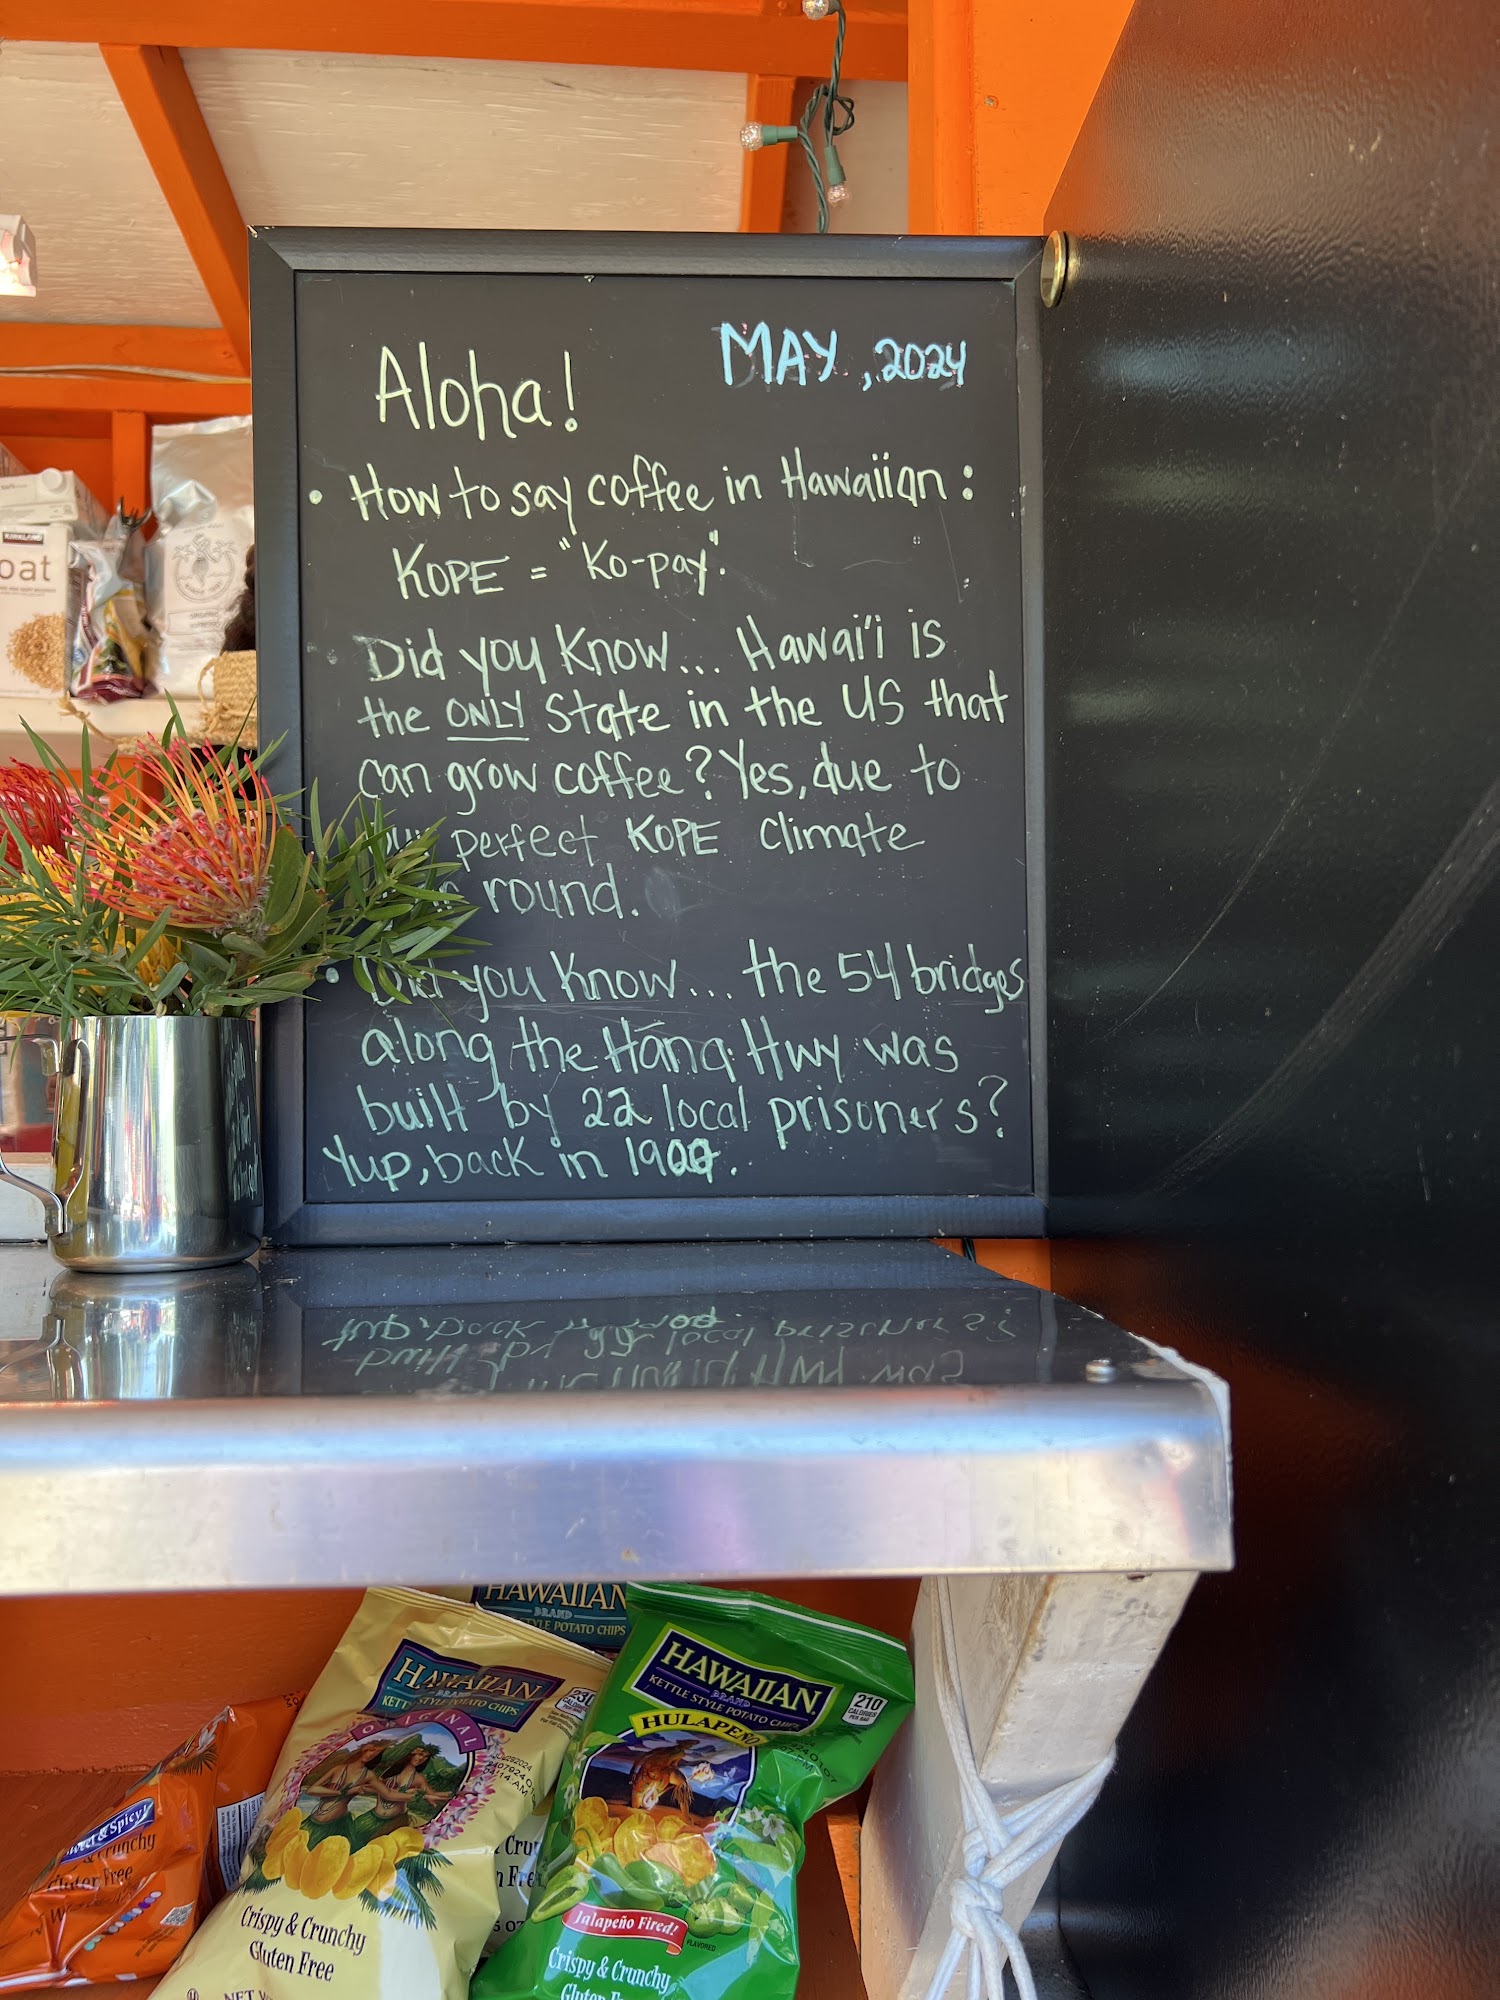 Aloha!
MAY, 2024
• How to say coffee in Hawaiian:
KOPE = "Ko-pay".
• Did you Know... Hawai'i is
the ONLY State in the US that
can grow coffee? Yes, due to
our perfect KOPE Climate
round.
• Did you Know... the 54 bridges
along the Hāna Hwy was
built by 22 local prisoners?
Yup, back in 1900.
KIRKLAND
oat
HAWAIIAN
BRAND
STYLE POTATO CHIPS
HAWAIIAN
BRAND
KETTLE STYLE POTATO CHIPS
ORIGINAL
230
CALORIES
Crispy & Crunchy
Gluten Free
NET
HAWAIIAN
BRAND
KETTLE STYLE POTATO CHIPS
HULAPEÑO
210
CALORIES
PER BAG
Jalapeño Fired!
FLAVORED
Crispy & Crunchy
Sweet & Spicy!
Crunchy
Gluten Free